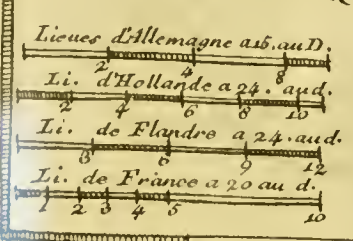 Lieues d'Allemagne a 15. au D.
2 4 8
Li. d'Hollande a 24. au d.
2 4 6 8 10
Li. de Flandre a 24. au d.
3 6 9 12
Li. de France a 20 au d.
1 2 3 4 5 10